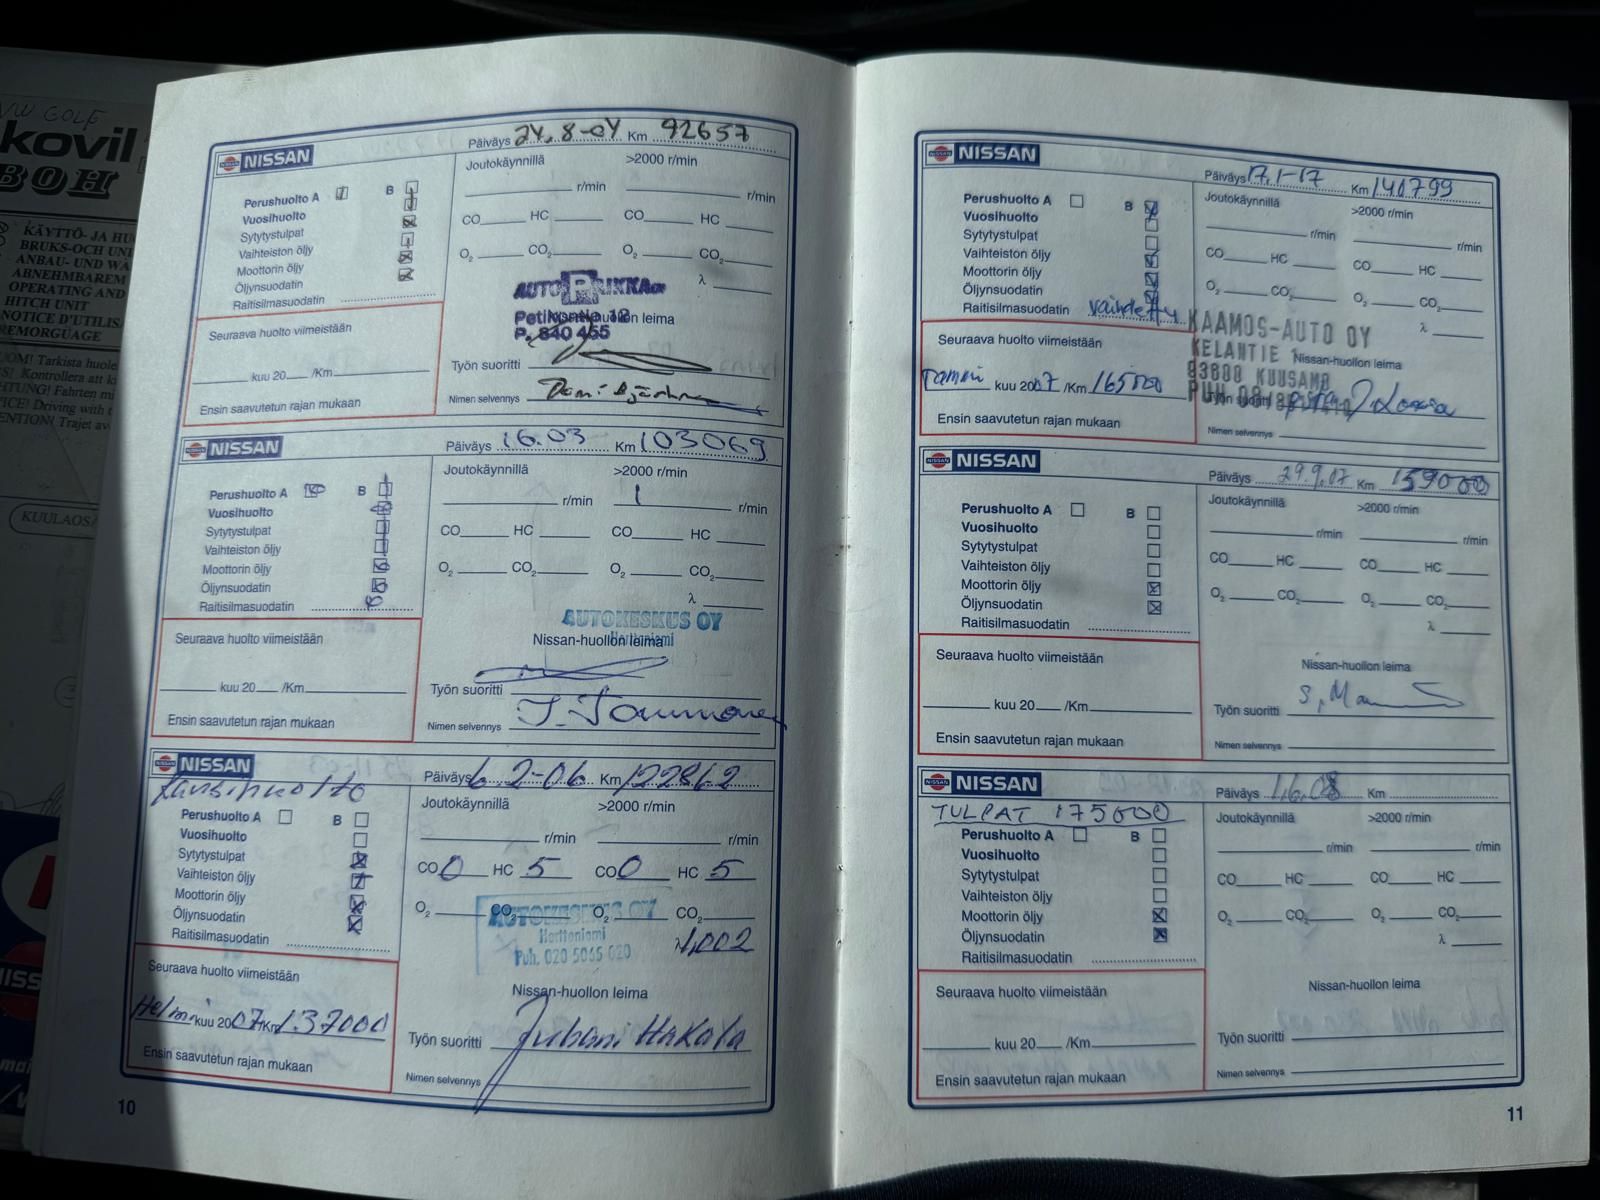 VW GOLF
kovil
BOH
KÄYTTÖ- JA HU
BRUKS-OCH UN
ANBAU- UND WA
ABNEHMBAREM
OPERATING AND
HITCH UNIT
NOTICE D'UTILIS
REMORGÜAGE
UOM! Tarkista huole
S! Kontrollera att k
HTUNG! Fahrten mi
ICE! Driving with t
ENTION! Trajet av
KUULAOS
NISSAN
Päiväys 24.8-04 Km 92657
Perushuolto A B
Vuosihuolto
Sytytystulpat
Vaihteiston öljy
Moottorin öljy
Öljynsuodatin
Raitisilmasuodatin
Joutokäynnillä >2000 r/min
r/min r/min
CO HC CO HC
O2 CO2 O2 CO2
λ
Nissan-huollon leima
P. 840 455
Seuraava huolto viimeistään
kuu 20 /Km
Ensin saavutetun rajan mukaan
Työn suoritti
Nimen selvennys
NISSAN
Päiväys 16.03 Km 103069
Perushuolto A B
Vuosihuolto
Sytytystulpat
Vaihteiston öljy
Moottorin öljy
Öljynsuodatin
Raitisilmasuodatin
Joutokäynnillä >2000 r/min
r/min r/min
CO HC CO HC
O2 CO2 O2 CO2
λ
AUTOKESKUS OY
Herttoniemi
Nissan-huollon leima
Seuraava huolto viimeistään
kuu 20 /Km
Ensin saavutetun rajan mukaan
Työn suoritti
Nimen selvennys
NISSAN
Päiväys 6.2-06 Km 122862
Perushuolto A B
Vuosihuolto
Sytytystulpat
Vaihteiston öljy
Moottorin öljy
Öljynsuodatin
Raitisilmasuodatin
Joutokäynnillä >2000 r/min
r/min r/min
CO 0 HC 5 CO 0 HC 5
O2 CO2 O2 CO2
λ 1,002
AUTOKESKUS OY
Herttoniemi
Puh. 020 5065 020
Nissan-huollon leima
Seuraava huolto viimeistään
Helmi kuu 2007 /Km 137000
Ensin saavutetun rajan mukaan
Työn suoritti Juhani Hakala
Nimen selvennys
10
NISSAN
Päiväys 17.1-17 Km 140799
Perushuolto A B
Vuosihuolto
Sytytystulpat
Vaihteiston öljy
Moottorin öljy
Öljynsuodatin
Raitisilmasuodatin vaihdettu
Joutokäynnillä >2000 r/min
r/min r/min
CO HC CO HC
O2 CO2 O2 CO2
λ
KAAMOS-AUTO OY
KELANTIE
93600 KUUSAMO
Nissan-huollon leima
Seuraava huolto viimeistään
Tammi kuu 2007 /Km 165000
Ensin saavutetun rajan mukaan
Työn suoritti
Nimen selvennys
NISSAN
Päiväys 29.9.07 Km 159000
Perushuolto A B
Vuosihuolto
Sytytystulpat
Vaihteiston öljy
Moottorin öljy
Öljynsuodatin
Raitisilmasuodatin
Joutokäynnillä >2000 r/min
r/min r/min
CO HC CO HC
O2 CO2 O2 CO2
λ
Nissan-huollon leima
Seuraava huolto viimeistään
kuu 20 /Km
Ensin saavutetun rajan mukaan
Työn suoritti
Nimen selvennys
NISSAN
Päiväys 1.6.08 Km
TULPAT 175000
Perushuolto A B
Vuosihuolto
Sytytystulpat
Vaihteiston öljy
Moottorin öljy
Öljynsuodatin
Raitisilmasuodatin
Joutokäynnillä >2000 r/min
r/min r/min
CO HC CO HC
O2 CO2 O2 CO2
λ
Nissan-huollon leima
Seuraava huolto viimeistään
kuu 20 /Km
Ensin saavutetun rajan mukaan
Työn suoritti
Nimen selvennys
11